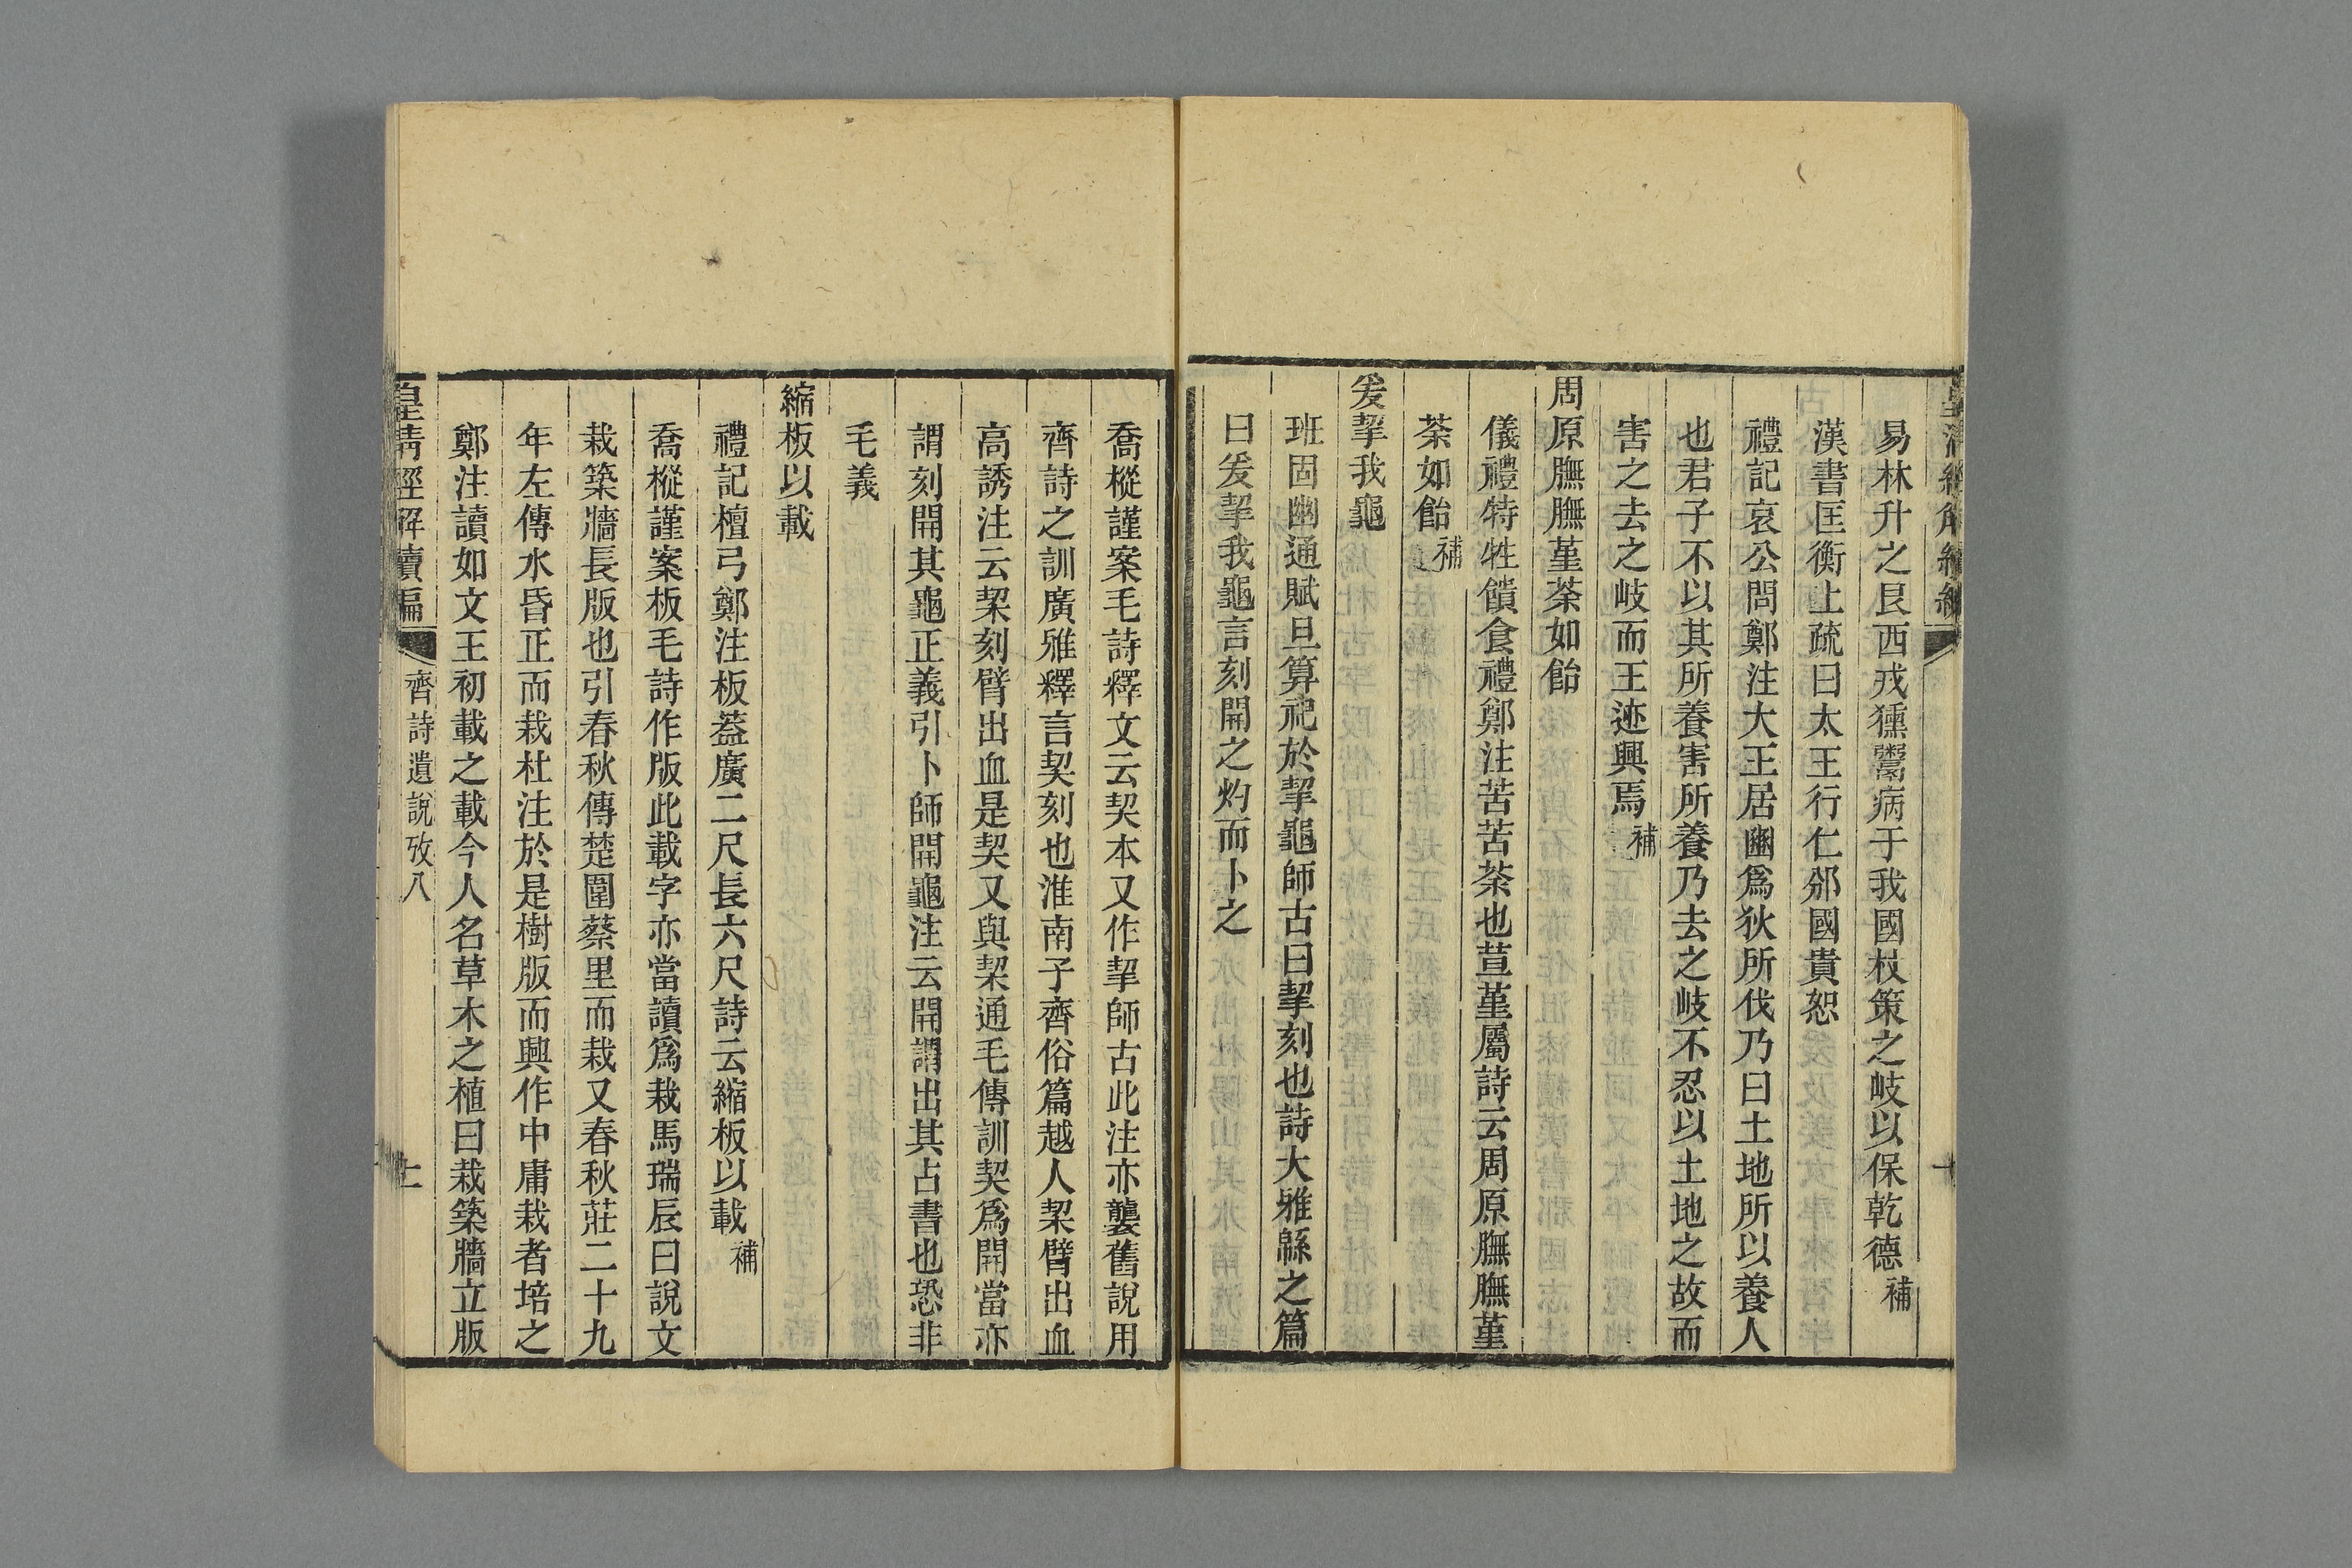 易林升之艮西戎獯鬻病于我國杖策之岐以保乾德補
漢書匡衡上疏曰太王行仁邠國貴恕
禮記哀公問鄭注大王居豳爲狄所伐乃曰土地所以養人
也君子不以其所養害所養乃去之岐不忍以土地之故而
害之去之岐而王迹興焉補
周原膴膴菫荼如飴
儀禮特牲饋食禮鄭注苦苦荼也荁菫屬詩云周原膴膴菫
荼如飴補
爰挈我龜
班固幽通賦旦算祀於挈龜師古曰挈刻也詩大雅緜之篇
曰爰挈我龜言刻開之灼而卜之
喬樅謹案毛詩釋文云契本又作挈師古此注亦襲舊說用
齊詩之訓廣雅釋言契刻也淮南子齊俗篇越人栔臂出血
高誘注云栔刻臂出血是契又與栔通毛傳訓契爲開當亦
謂刻開其龜正義引卜師開龜注云開謂出其占書也恐非
毛義
縮板以載
禮記檀弓鄭注板蓋廣二尺長六尺詩云縮板以載補
喬樅謹案板毛詩作版此載字亦當讀爲栽馬瑞辰曰說文
栽築牆長版也引春秋傳楚圍蔡里而栽又春秋莊二十九
年左傳水昏正而栽杜注於是樹版而興作中庸栽者培之
鄭注讀如文王初載之載今人名草木之植曰栽築牆立版
皇清經解續編
齊詩遺說攷八